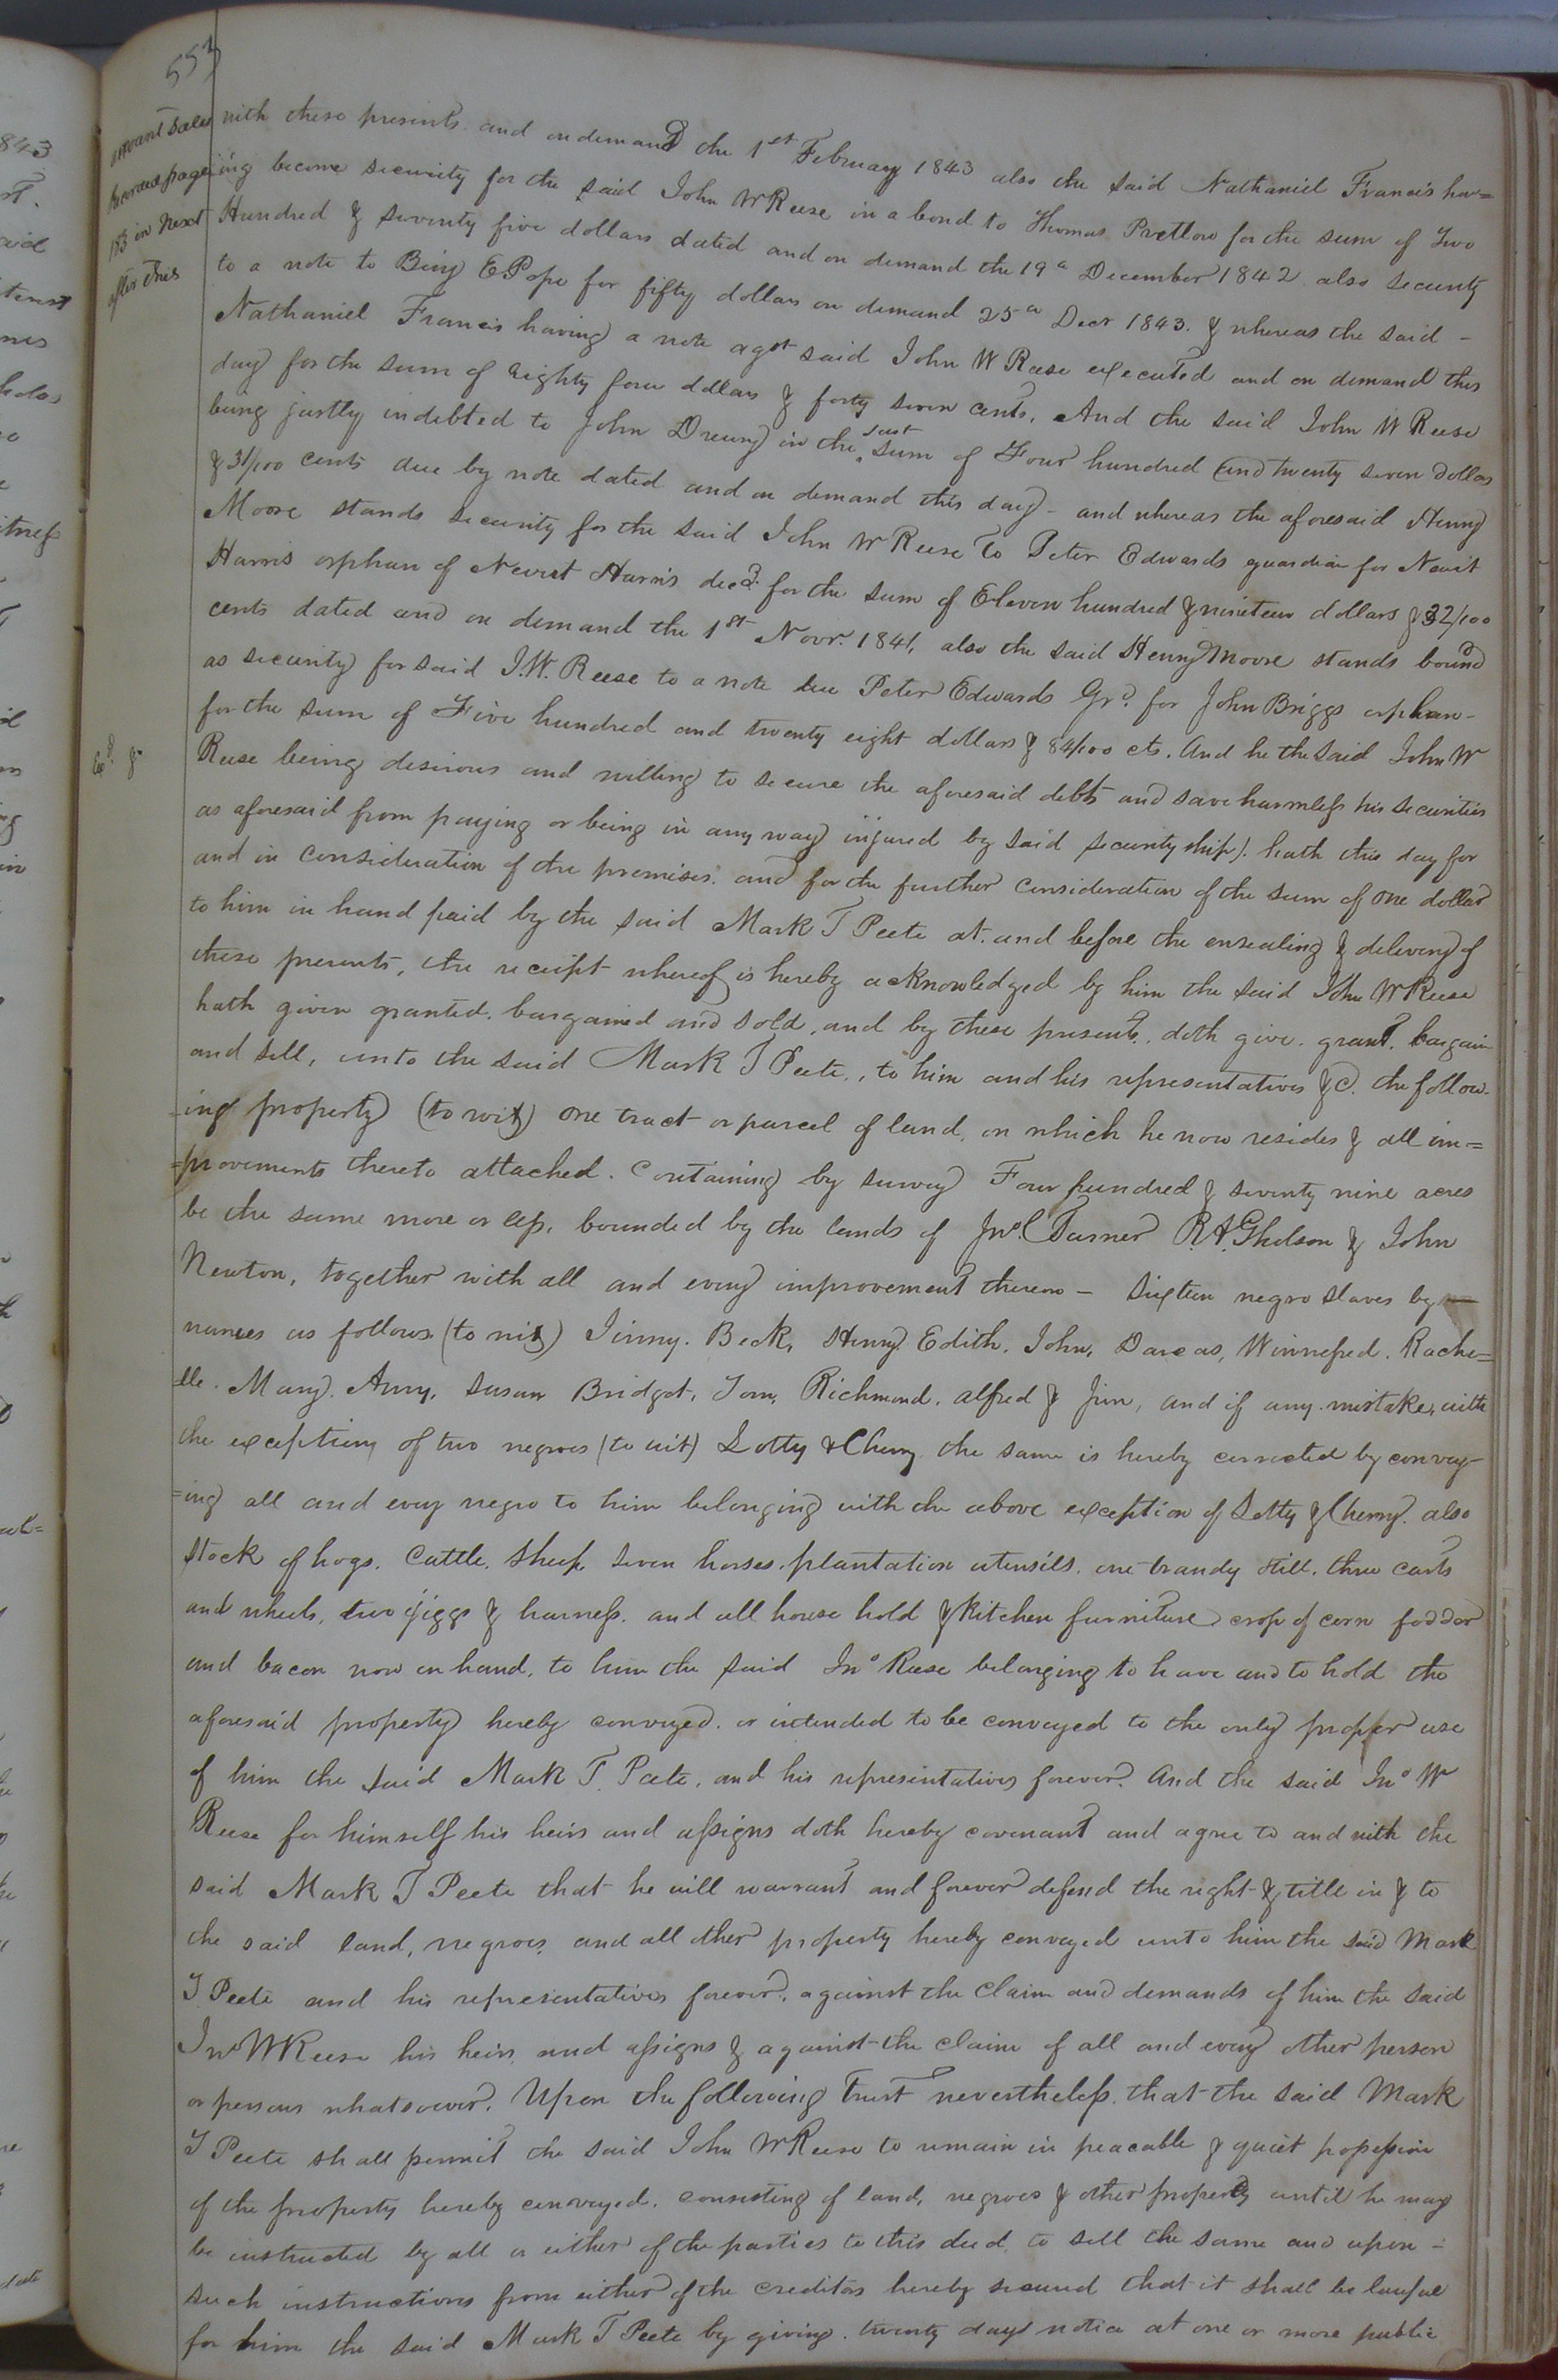 553
amount Sales
Recorded page
183 in Next
after this
with these presents and on demand the 1st February 1843 also the said Nathaniel Francis hav=
ing become security for the said John W Reese in a bond to Thomas Pretlow for the sum of Two
Hundred & seventy five dollars dated and on demand the 19th December 1842 also security
to a note to Benj E. Pope for fifty dollars on demand 25th Decr 1843. & whereas the said -
Nathaniel Francis having a note agst said John W Reese executed and on demand this
day for the sum of Eighty four dollars & forty seven cents. And the said John W Reese
being justly indebted to John Drewry in the just sum of Four hundred and twenty seven dollars
& 31/100 cents due by note dated and on demand this day - and whereas the aforesaid Henry
Moore stands security for the said John W Reese To Peter Edwards guardian for Newit
Harris orphan of Newit Harris decd. for the sum of Eleven hundred & nineteen dollars & 32/100
cents dated and on demand the 1st Novr. 1841, also the said Henry Moore stands bound
as security for said J. W. Reese to a note due Peter Edwards Grd. for John Briggs orphan -
for the sum of Five hundred and twenty eight dollars & 84/100 cts. And he the said John W
Reese being desirous and willing to secure the aforesaid debts and save harmless his securities
as aforesaid from paying or being in any way injured by said security ship). hath this day for
and in consideration of the premises. and for the further consideration of the sum of one dollar
to him in hand paid by the said Mark T Peete at. and before the ensealing & delivery of
these presents, the receipt whereof is hereby acknowledged by him the said John W Reese
hath given granted. bargained and sold, and by these presents. doth give. grant. bargain
and sell, unto the said Mark T Peete., to him and his representatives &c. the follow-
-ing property (to wit) one tract or parcel of land, on which he now resides & all im=
=provements thereto attached. Containing by survey Four hundred & seventy nine acres
be the same more or less, bounded by the lands of Jno. C Turner R. A. Gholson & John
Newton, together with all and every improvement thereon - Sixteen negro slaves by
names as follows (to wit) Jinny. Beck, Henry. Edith. John, Darcas, Winnefred. Rache=
lle. Mary. Amy, Susan Bridget, Tom, Richmond. Alfred & Jim, and if any mistake, with
the exceptions of two negroes (to wit) Lotty & Cherry the same is hereby corrected by convey-
=ing all and every negro to him belonging with the above exception of Lotty & Cherry. also
stock of hogs. Cattle. Sheep. Seven horses. plantation utensils. one brandy still. three carts
and wheels, two giggs & harness. and all house hold & kitchen furniture crop of corn fodder
and bacon now on hand, to him the said Jno Reese belonging to have and to hold the
aforesaid property hereby conveyed. or intended to be conveyed to the only proper use
of him the said Mark T. Peete, and his representatives forever. And the said Jno W
Reese for himself his heirs and assigns doth hereby covenant and agree to and with the
said Mark T Peete that he will warrant and forever defend the right & title in & to
the said land, negroes, and all other property hereby conveyed unto him the said Mark
T. Peete and his representatives forever, against the claim and demands of him the said
Jno W Reese his heirs and assigns & against the claim of all and every other person
or persons whatsoever. Upon the following Trust nevertheless. that the said Mark
T Peete shall permit the said John W Reese to remain in peacable & quiet possession
of the property hereby conveyed. consisting of land, negroes & other property until he may
be instructed by all or either of the parties to this deed to sell the same and upon -
such instructions from either of the creditors hereby secured that it shall be lawful
for him the said Mark T Peete by giving. twenty days notice at one or more public